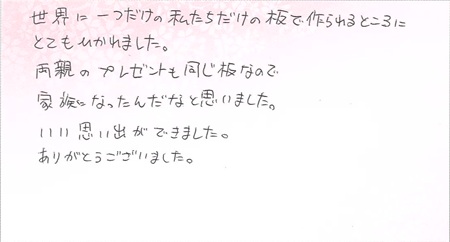 世界に一つだけの私たちだけの板で作られるところに
とてもひかれました。
両親のプレゼントも同じ板なので
家族になったんだなと思いました。
いい思い出ができました。
ありがとうございました。